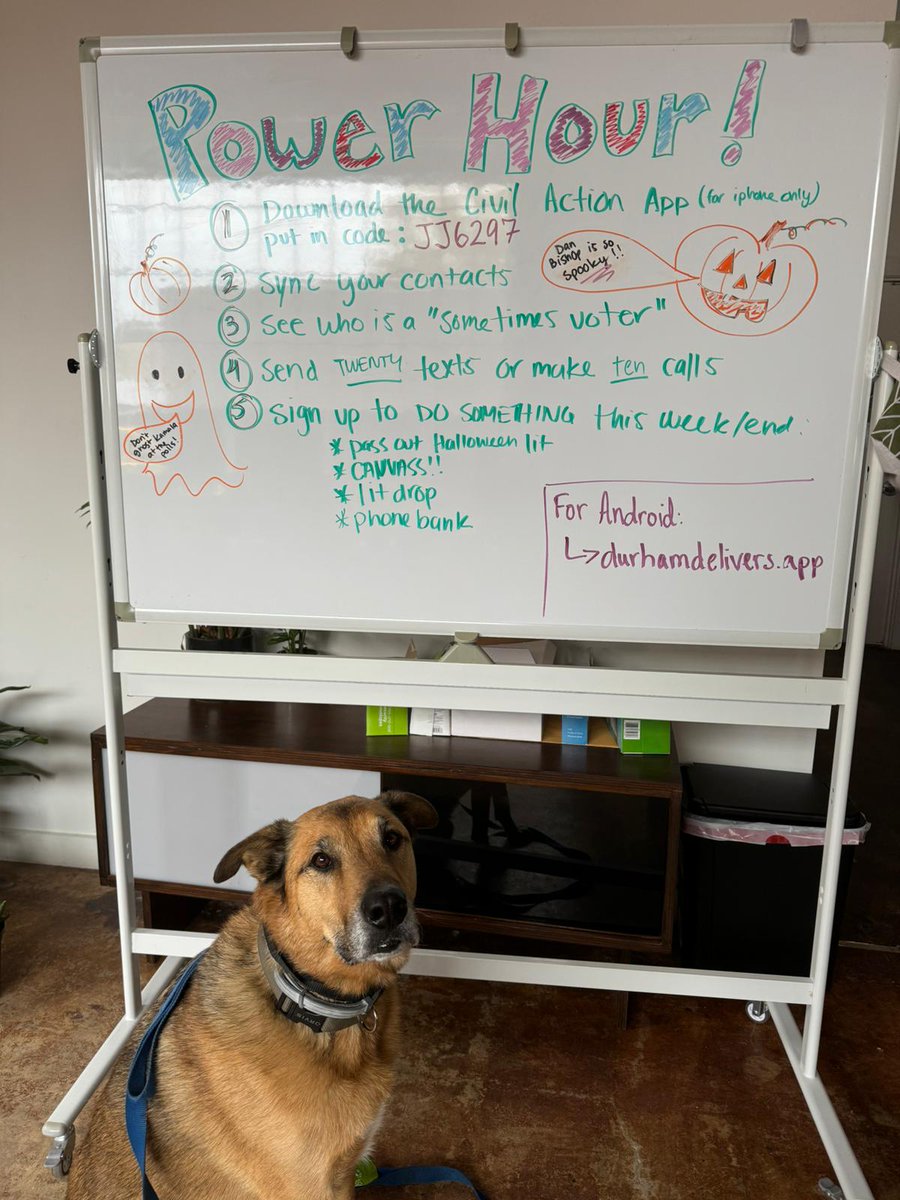 Power Hour!
1 Download the Civil Action App (for iphone only)
put in code: JJ6297
Dan
Bishop is so
spooky!!
2 Sync your contacts
3 See who is a "sometimes voter"
4 Send TWENTY texts or make ten calls
Don't
ghost Kamala
at the
polls!
5 Sign up to DO SOMETHING this week/end:
* pass out Halloween lit
* CANVASS!!
* lit drop
* phone bank
For Android:
↳ durhamdelivers.app